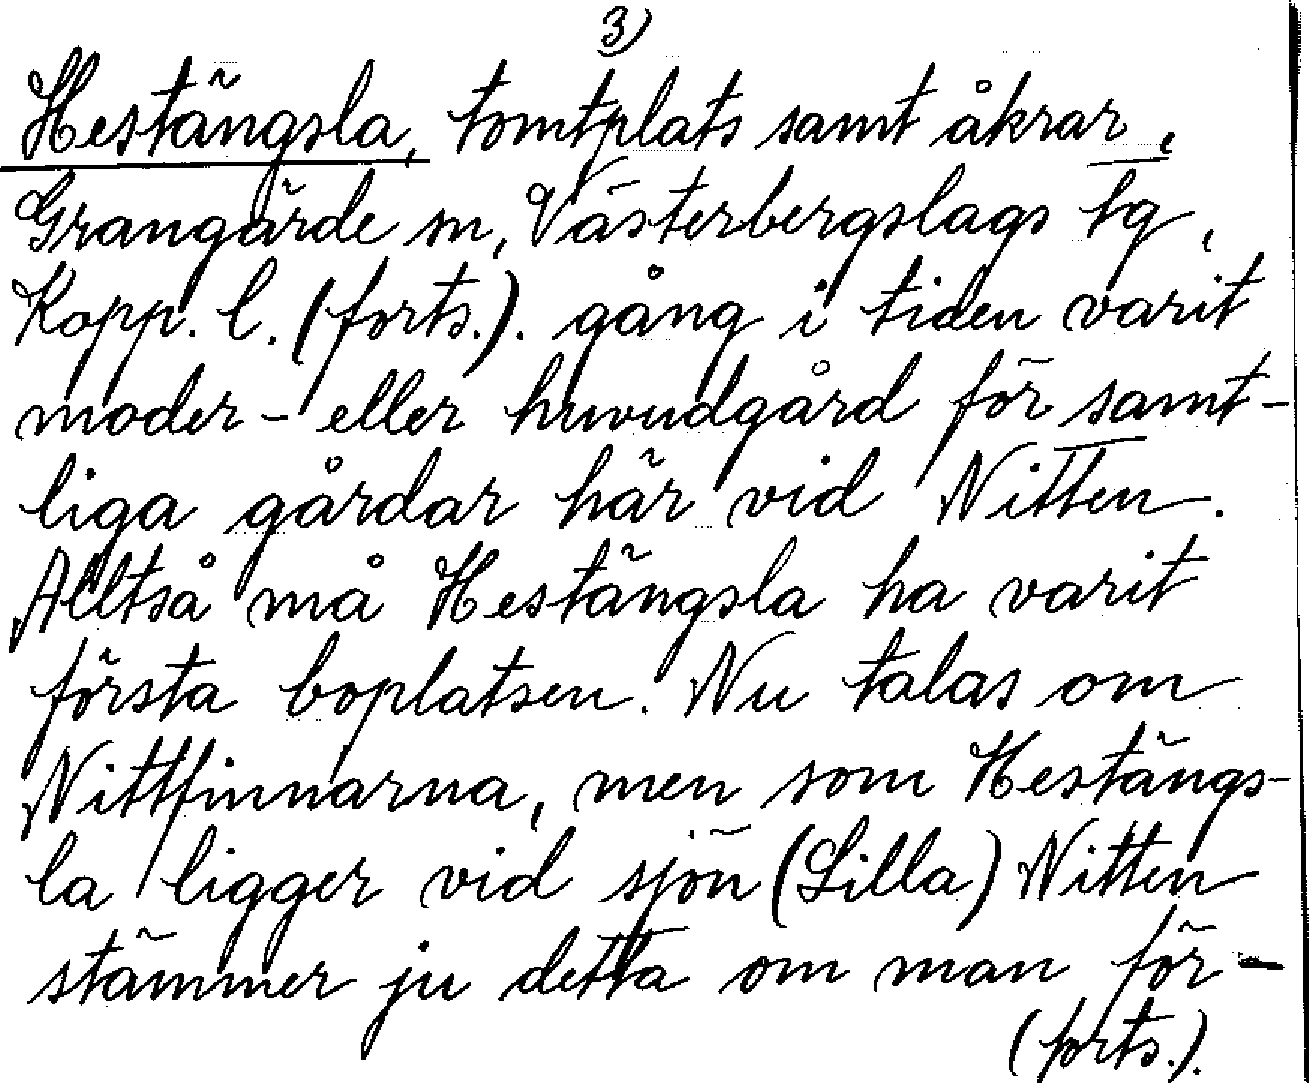 3)
Hestängsla, tomtplats samt åkrar,
Grangärde sn, Västerbergslags tg,
Kopp. l. (forts.). gång i tiden varit
moder- eller huvudgård för samt-
liga gårdar här vid Nitten.
Alltså må Hestängsla ha varit
första boplatsen. Nu talas om
Nittfinnarna, men som Hestängs-
la ligger vid sjön (Lilla) Nitten
stämmer ju detta om man för-
(forts.).